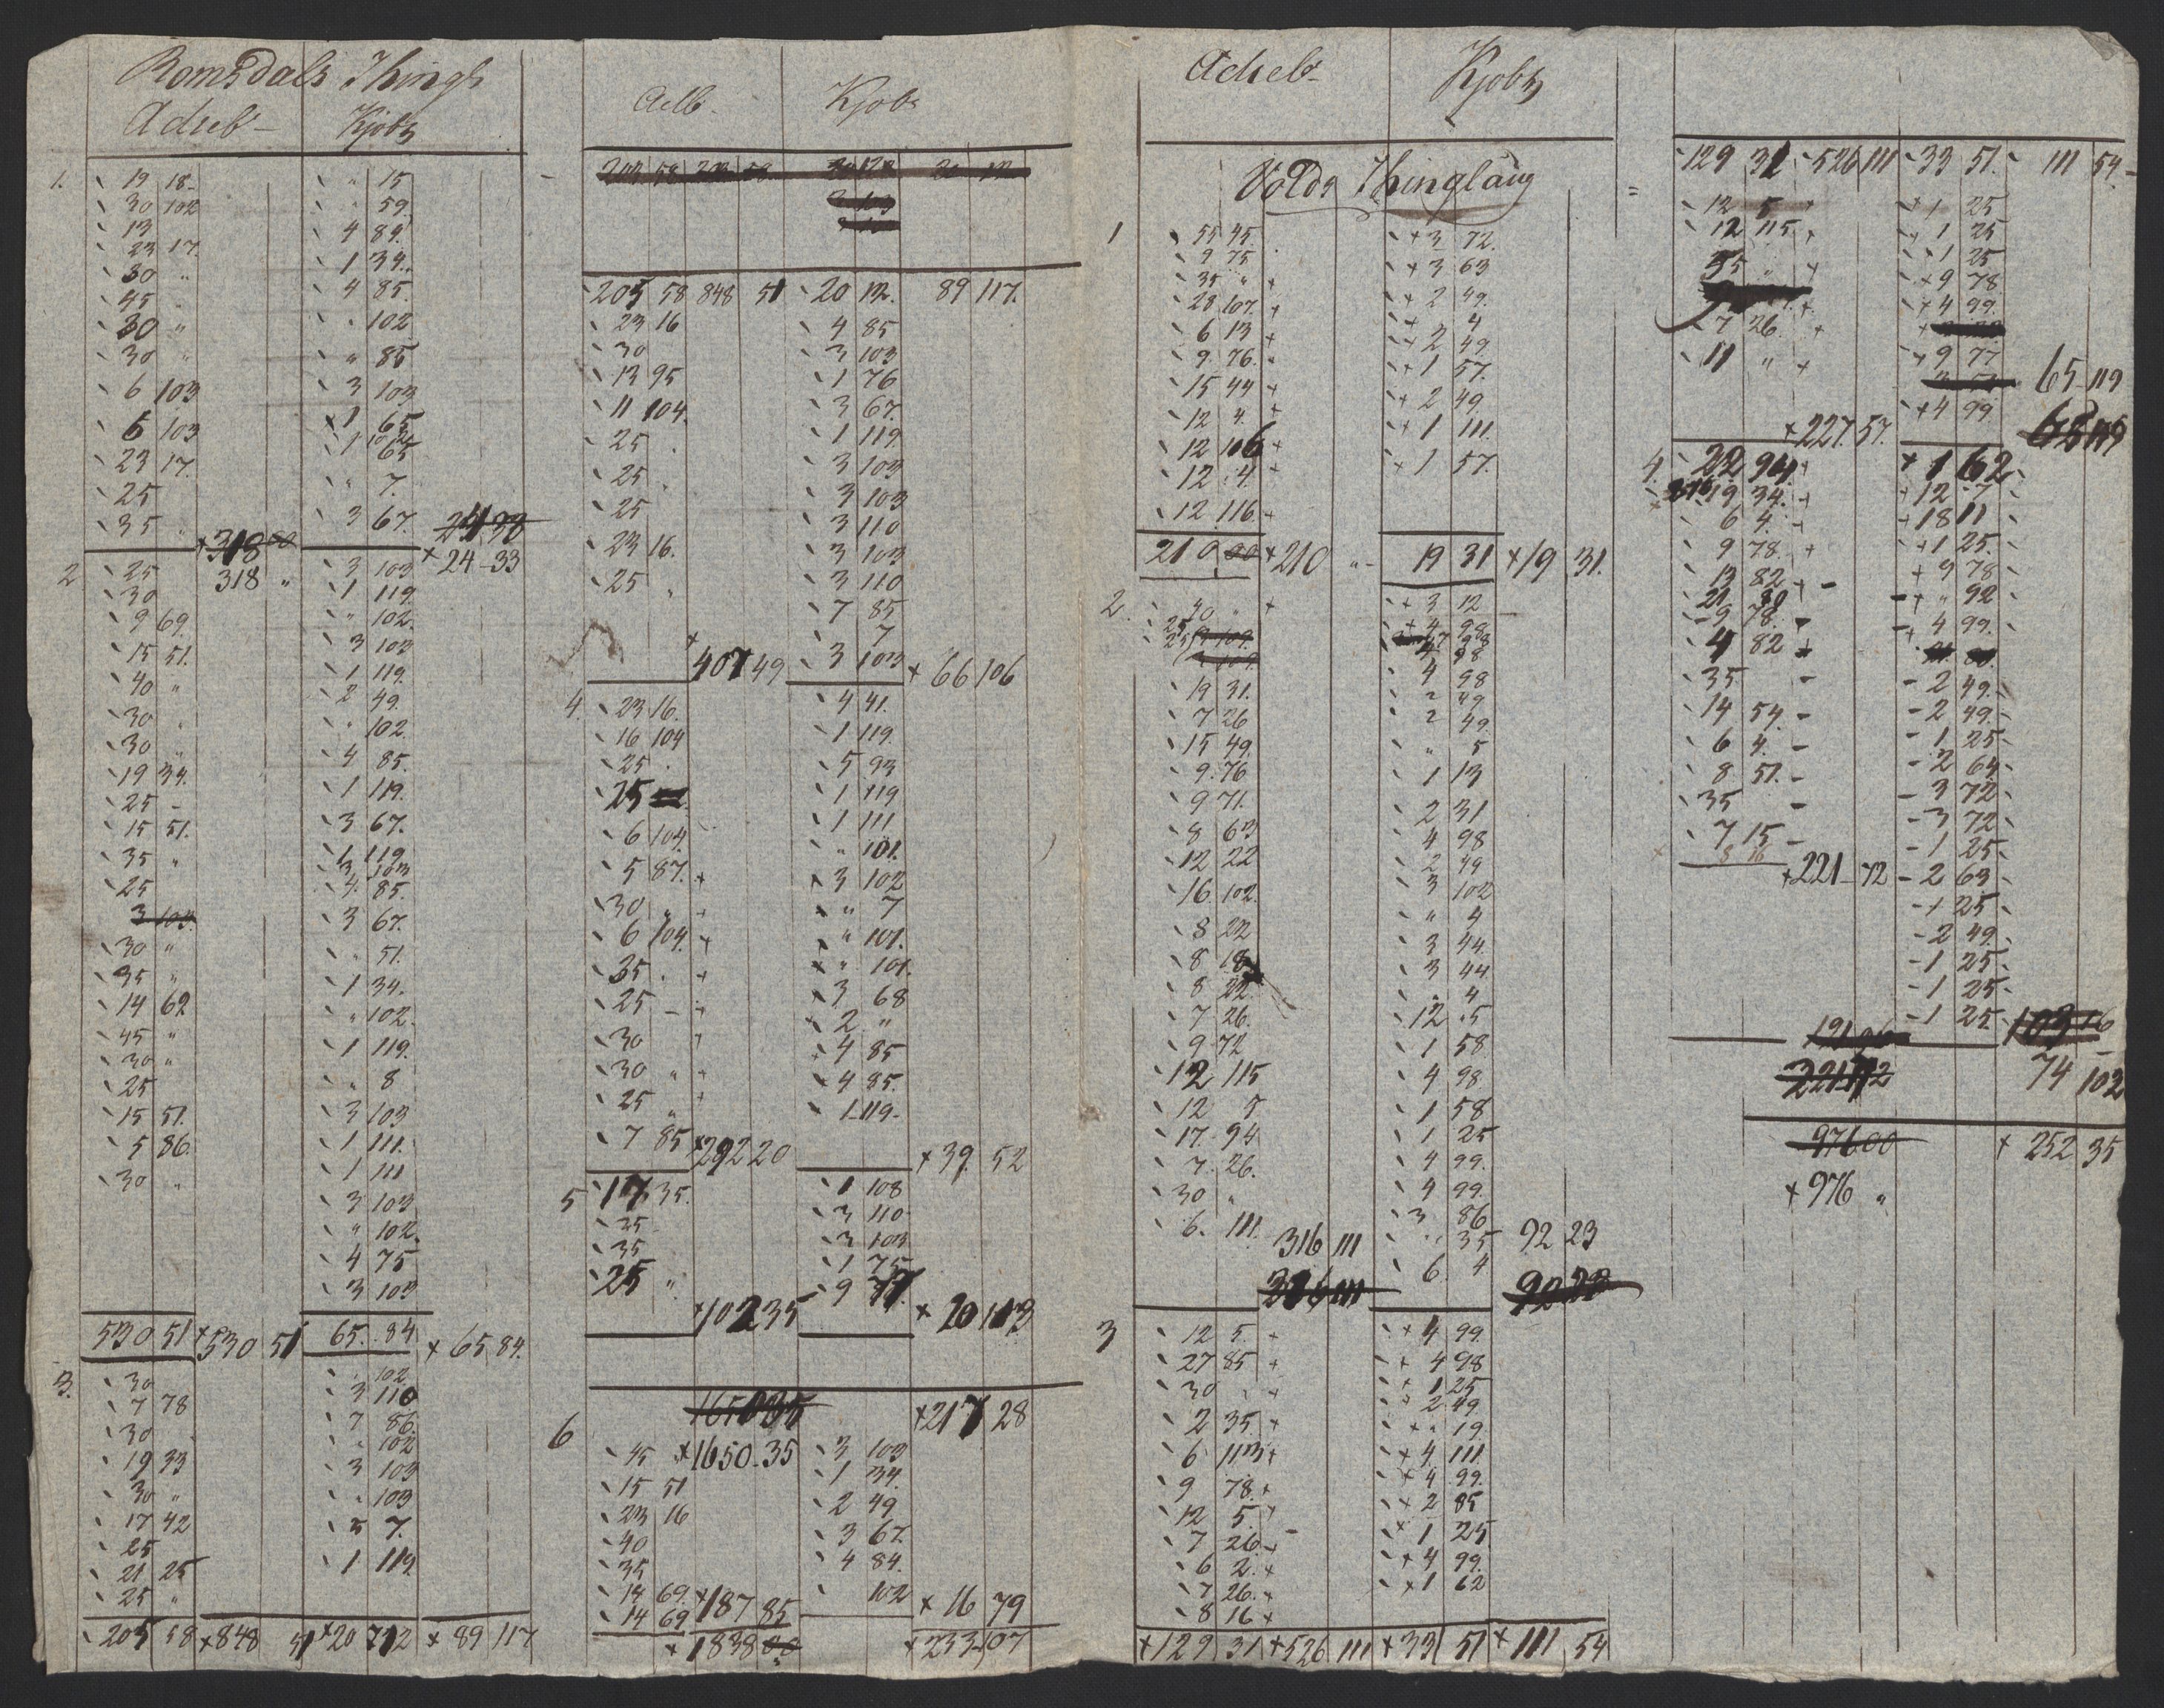 Romsdals Thingl
Adseb- Kjobs
1. 19 18- " 15
30 102 " 59
13 4 89.
23 17. 1 34.
30 " 4 85.
45 . " 102
30 " " 85
30 " 3 103
6 103 1 65
6 103 1 65
23 17. " 7.
25 3 67.
35 " 24 33
318 00 + 24-33
318 "
2 25 3 103
30 1 119.
9 69. " 102.
15 51. 3 103
40 " 1 119.
30 . 2 49.
30 " " 102.
19 34. 4 85.
25 - 1 119.
15 51. 3 67.
35 " 1 119
25 3 103
3 104. 4. 85.
30 " 3 67.
35 " " 51.
14 62 1 34.
45 " " 102.
30 " 1 119.
25 " 8
15 51. 3 103
5 86. 1 111.
30 " 1 111
3 103
" 102.
4 75
3 103
530 51 +530 51 65. 84 + 65 84.
3. 30 " 102
7 78 3 110
30 7 86.
19 33 " 102
30 " 3 103
17 42 " 103
25 5 7.
21 25 1 119
25 "
205 58 +848 51 +20 112 + 89 117
Aelb. Kjobs
205 58 848 51 20 112. 89 117.
23 16 4 85
30 3 103
13 95 1 76
11 104. 3 67.
25 . 1 119.
25 . 3 103
25 3 103
23 16. 3 110
25 . 3 103
3 110
7 85
7
+407 49 3 103 + 66 106
4. 23 16. 4 41.
16 104 1 119.
25 . 5 93
25 1 119
6 104. 1 111
5 87. + " 101.
30 " + 3 102
6 104. + " 7
35 . + " 101.
25 - + " 101.
30 " 3 68
30 " + 2 "
25 " + 4 85
7 85 4 85.
1-119-
+292 20 + 39. 52
5 17 35. 1 108
25 3 110
35 3 103
25 " 1 75
9 77.
+102 35 + 20 113
1650 35 +217 28
6 45 +1650.35 3 103
15 51 1 34.
23 16 2 49
40 3 67.
35 4 84.
14 69. +187 85 102 + 16 79
14 69
+ 1838 00 +233 107
Adseb- Kjobs
Volds Thinglaug
1 55 45. +3 72.
9 75 +3 63
35 " + + 2 49.
28 107. + + 4
6 13 + + 2 49
9 76. +1 57.
15 44 + + 2 49.
12 4. + +1 111.
12 106 + +1 57.
12 4. +
12 116. +
210 00 +210 "- 19 31 +19 31.
2. 40 " + + 3 12
25 + 4 98
25 9 109. 4 98
19 31. 4 98
7 26 2 49
15 49. 2 49.
9. 76 " 5
9 71. 1 13
8 63 2 31
12 22 4 98
16 102. 2 49
8 22 3 102
8 18 " 4
8 22. 3 44.
7 26. 3 44
9. 72 " 4
12 115 12 .5
12 5 1 58
17. 94 4 98.
7. 26. 1 58
30 " 1 25
6. 111. 4 99.
316 111 4 99.
3 86
" 35 92 23
316 111 6. 4 92 23
3 12 5. + + 4 99.
27 85 + + 4 98
30 " + + 1 25
2 35. + + 2 49
6 113 + + " 19.
9 78. + + 4. 111
12 5. + + 4 99.
7 26 + + 2 85
6 2. + + 1 25.
7 26. + + 4 99.
8 16 + +1 62
+129 31 +526 111 +33 51 +111 54
129 31 526 111 33 51. 111 54
12 5 + +1 25
12 115 + +1 25
35 " + +1 25
+9 78
7 26. + +4 99.
11 " + +9 77
65 119
+4 99
+227. 57. 65 119
4. 22 94 + +1 62
19 34. + +12 7
6 4. + +18 11
9 78. + +1 25.
13 82 + +9 78
21 30 + " 92
9 78. 4 99.
4 82 +
35 - 2 49.
14 54 - 2 49.
6 4. - 1 25
8 51. - 2 64
35 - 3 72
7 15 - 3 72
8 16 - 1 25
+221-72 - 2 63
-1 25
-2 49.
-1 25
-1 25
-1 25 103 16
191 96
221 72 74 102
976 00 + 252 35
+976 "